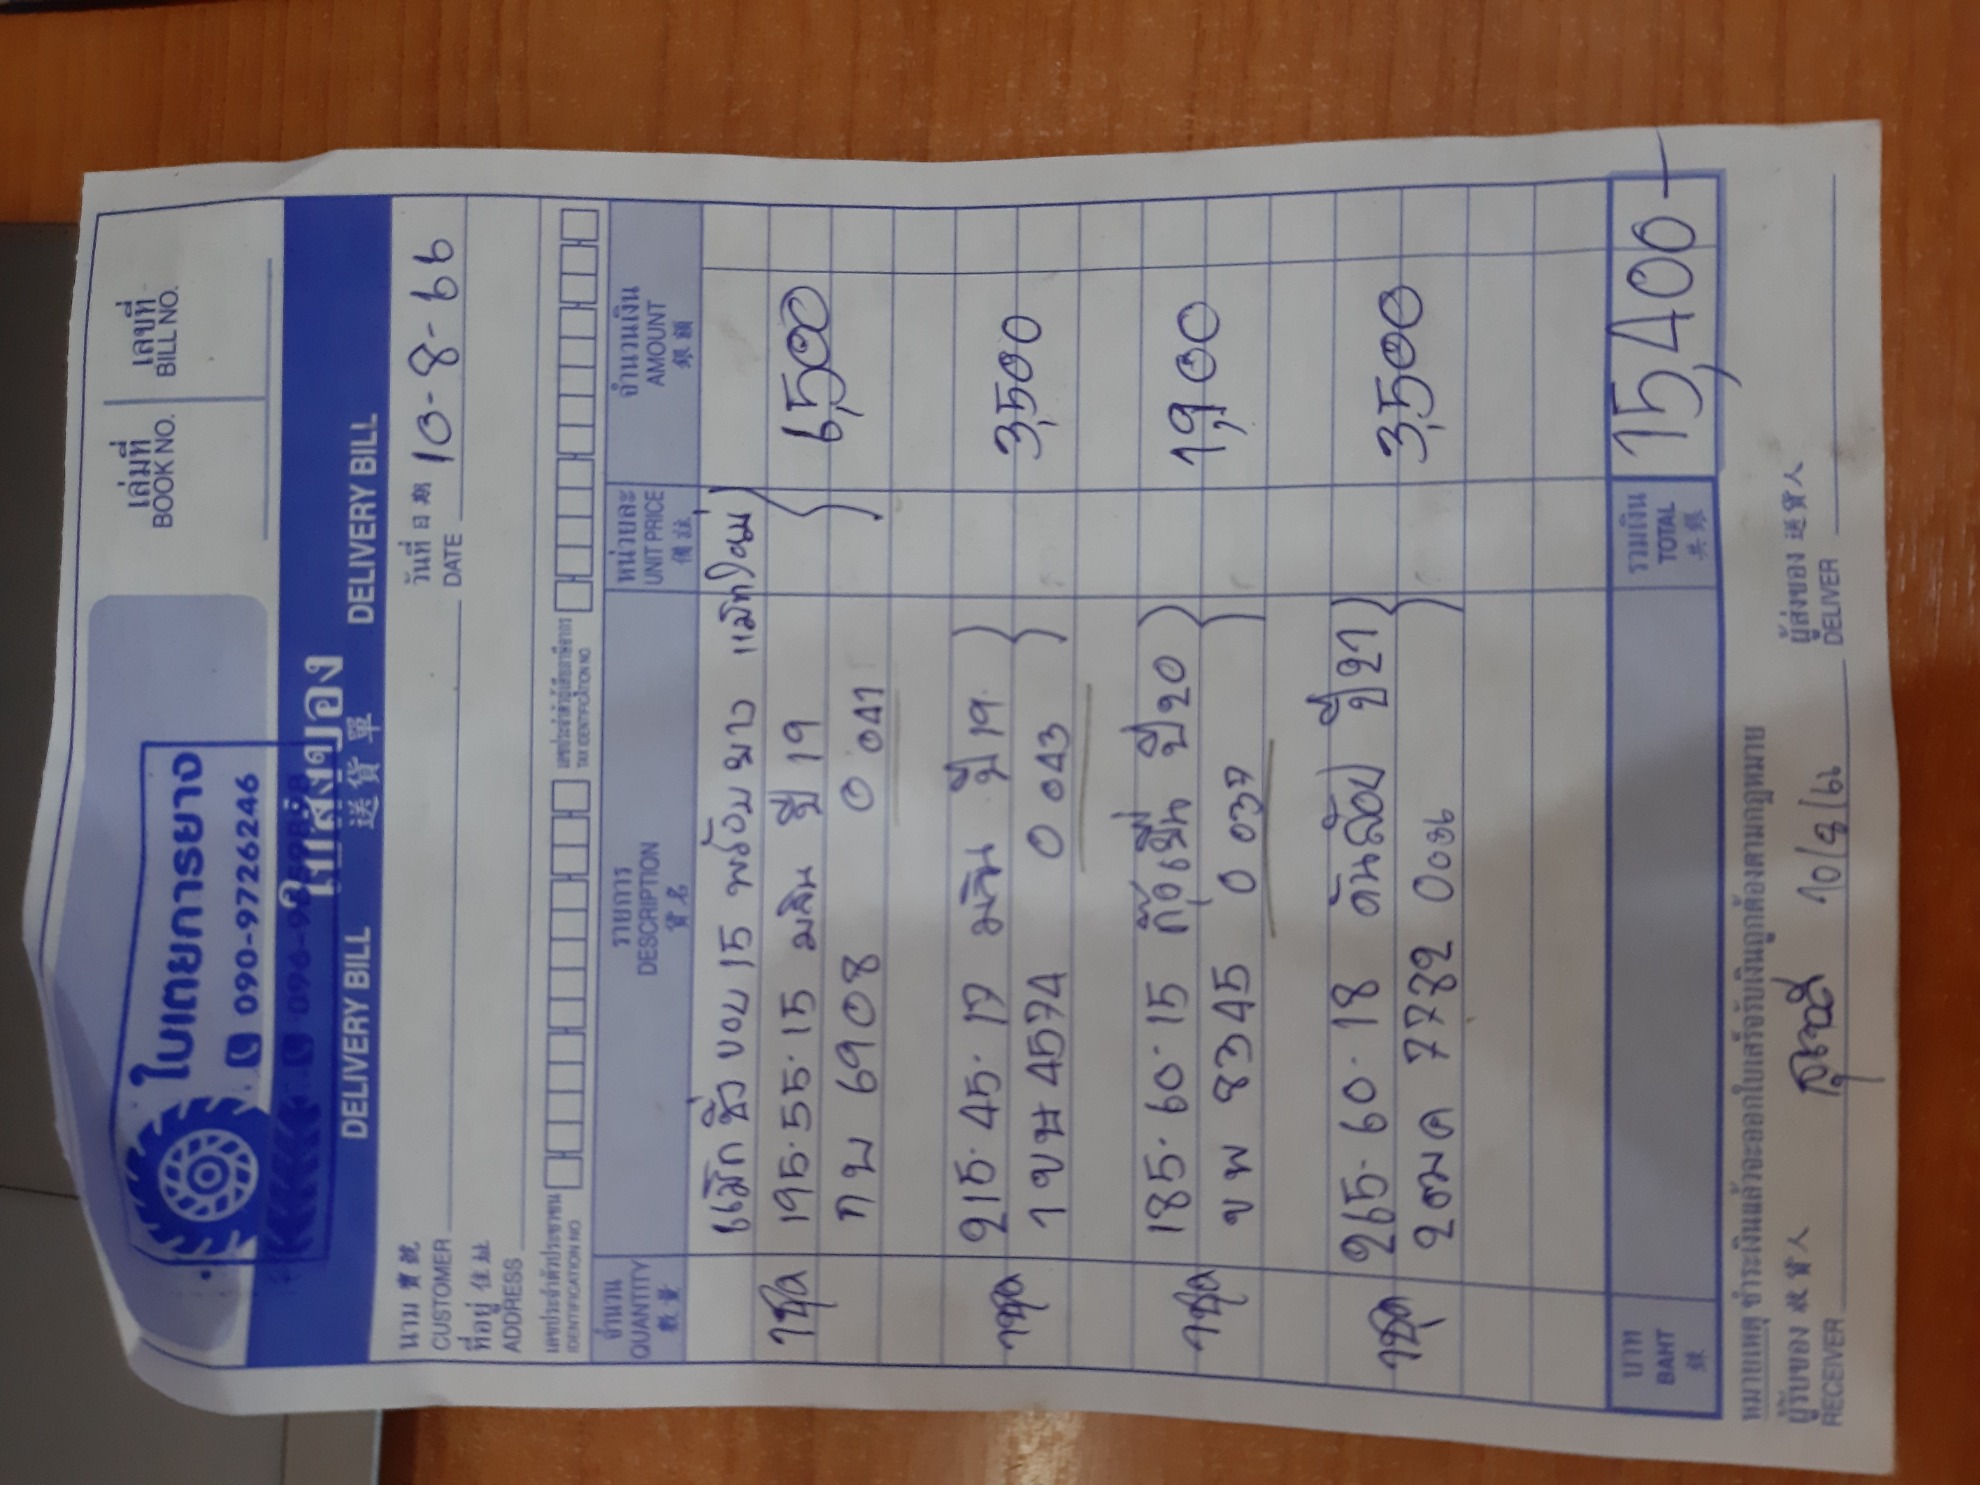 เล่มที่
BOOK NO.
เลขที่
BILL NO.
ใบเตยการยาง
090-9726246
DELIVERY BILL ใบส่งของ DELIVERY BILL
送貨單
นาม
CUSTOMER
วันที่ 日期 10-8-66
DATE
ที่อยู่ 住址
ADDRESS
เลขประจำตัวประชาชน
IDENTIFICATION NO
เลขประจำตัวผู้เสียภาษีอากร
TAX IDENTIFICATION NO.
จำนวน รายการ หน่วยละ จำนวนเงิน
QUANTITY DESCRIPTION UNIT PRICE AMOUNT
數量 貨名 備註 銀額
แม็ก ซิ่ว ขอบ 15 พร้อม ยาง แม็กใหม่
1ชุด 195.55.15 มลิน ปี 19 6,500
กบ 6908 0 041
215.45.17 มลิน ปี 19
1ชุด 1 ขฆ 4574 0 043 3,500
185.60.15 กู๊ดเยีย ปี 20
1ชุด ขพ 8345 0 037 1,900
265.60.18 ดันลอป ปี 21
1ชุด 2ฒค 7782 0036 3,500
บาท
BAHT
รวมเงิน
TOTAL
共銀
15,400-
หมายเหตุ ชำระเงินแล้วจะออกใบเสร็จรับเงินถูกต้องตามกฎหมาย
ผู้รับของ 收貨人 10/8/66
RECEIVER
ผู้ส่งของ 送貨人
DELIVER